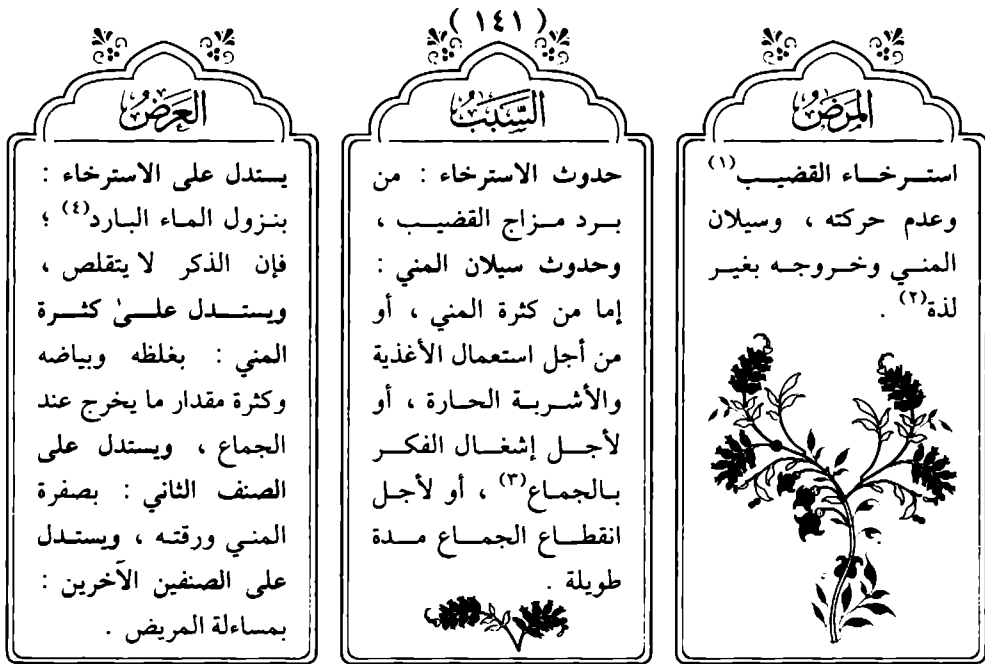 ( ١٤١ )
المَرَضُ
استرخاء القضيب(١)
وعدم حركته ، وسيلان
المني وخروجه بغير
لذة(٢) .
السَّبَبُ
حدوث الاسترخاء : من
برد مزاج القضيب ،
وحدوث سيلان المني :
إما من كثرة المني ، أو
من أجل استعمال الأغذية
والأشربة الحارة ، أو
لأجل إشغال الفكر
بالجماع(٣) ، أو لأجل
انقطاع الجماع مدة
طويلة .
العَرَضُ
يستدل على الاسترخاء :
بنزول الماء البارد(٤) ؛
فإن الذكر لا يتقلص ،
ويستدل علىٰ كثرة
المني : بغلظه وبياضه
وكثرة مقدار ما يخرج عند
الجماع ، ويستدل على
الصنف الثاني : بصفرة
المني ورقته ، ويستدل
على الصنفين الآخرين :
بمساءلة المريض .